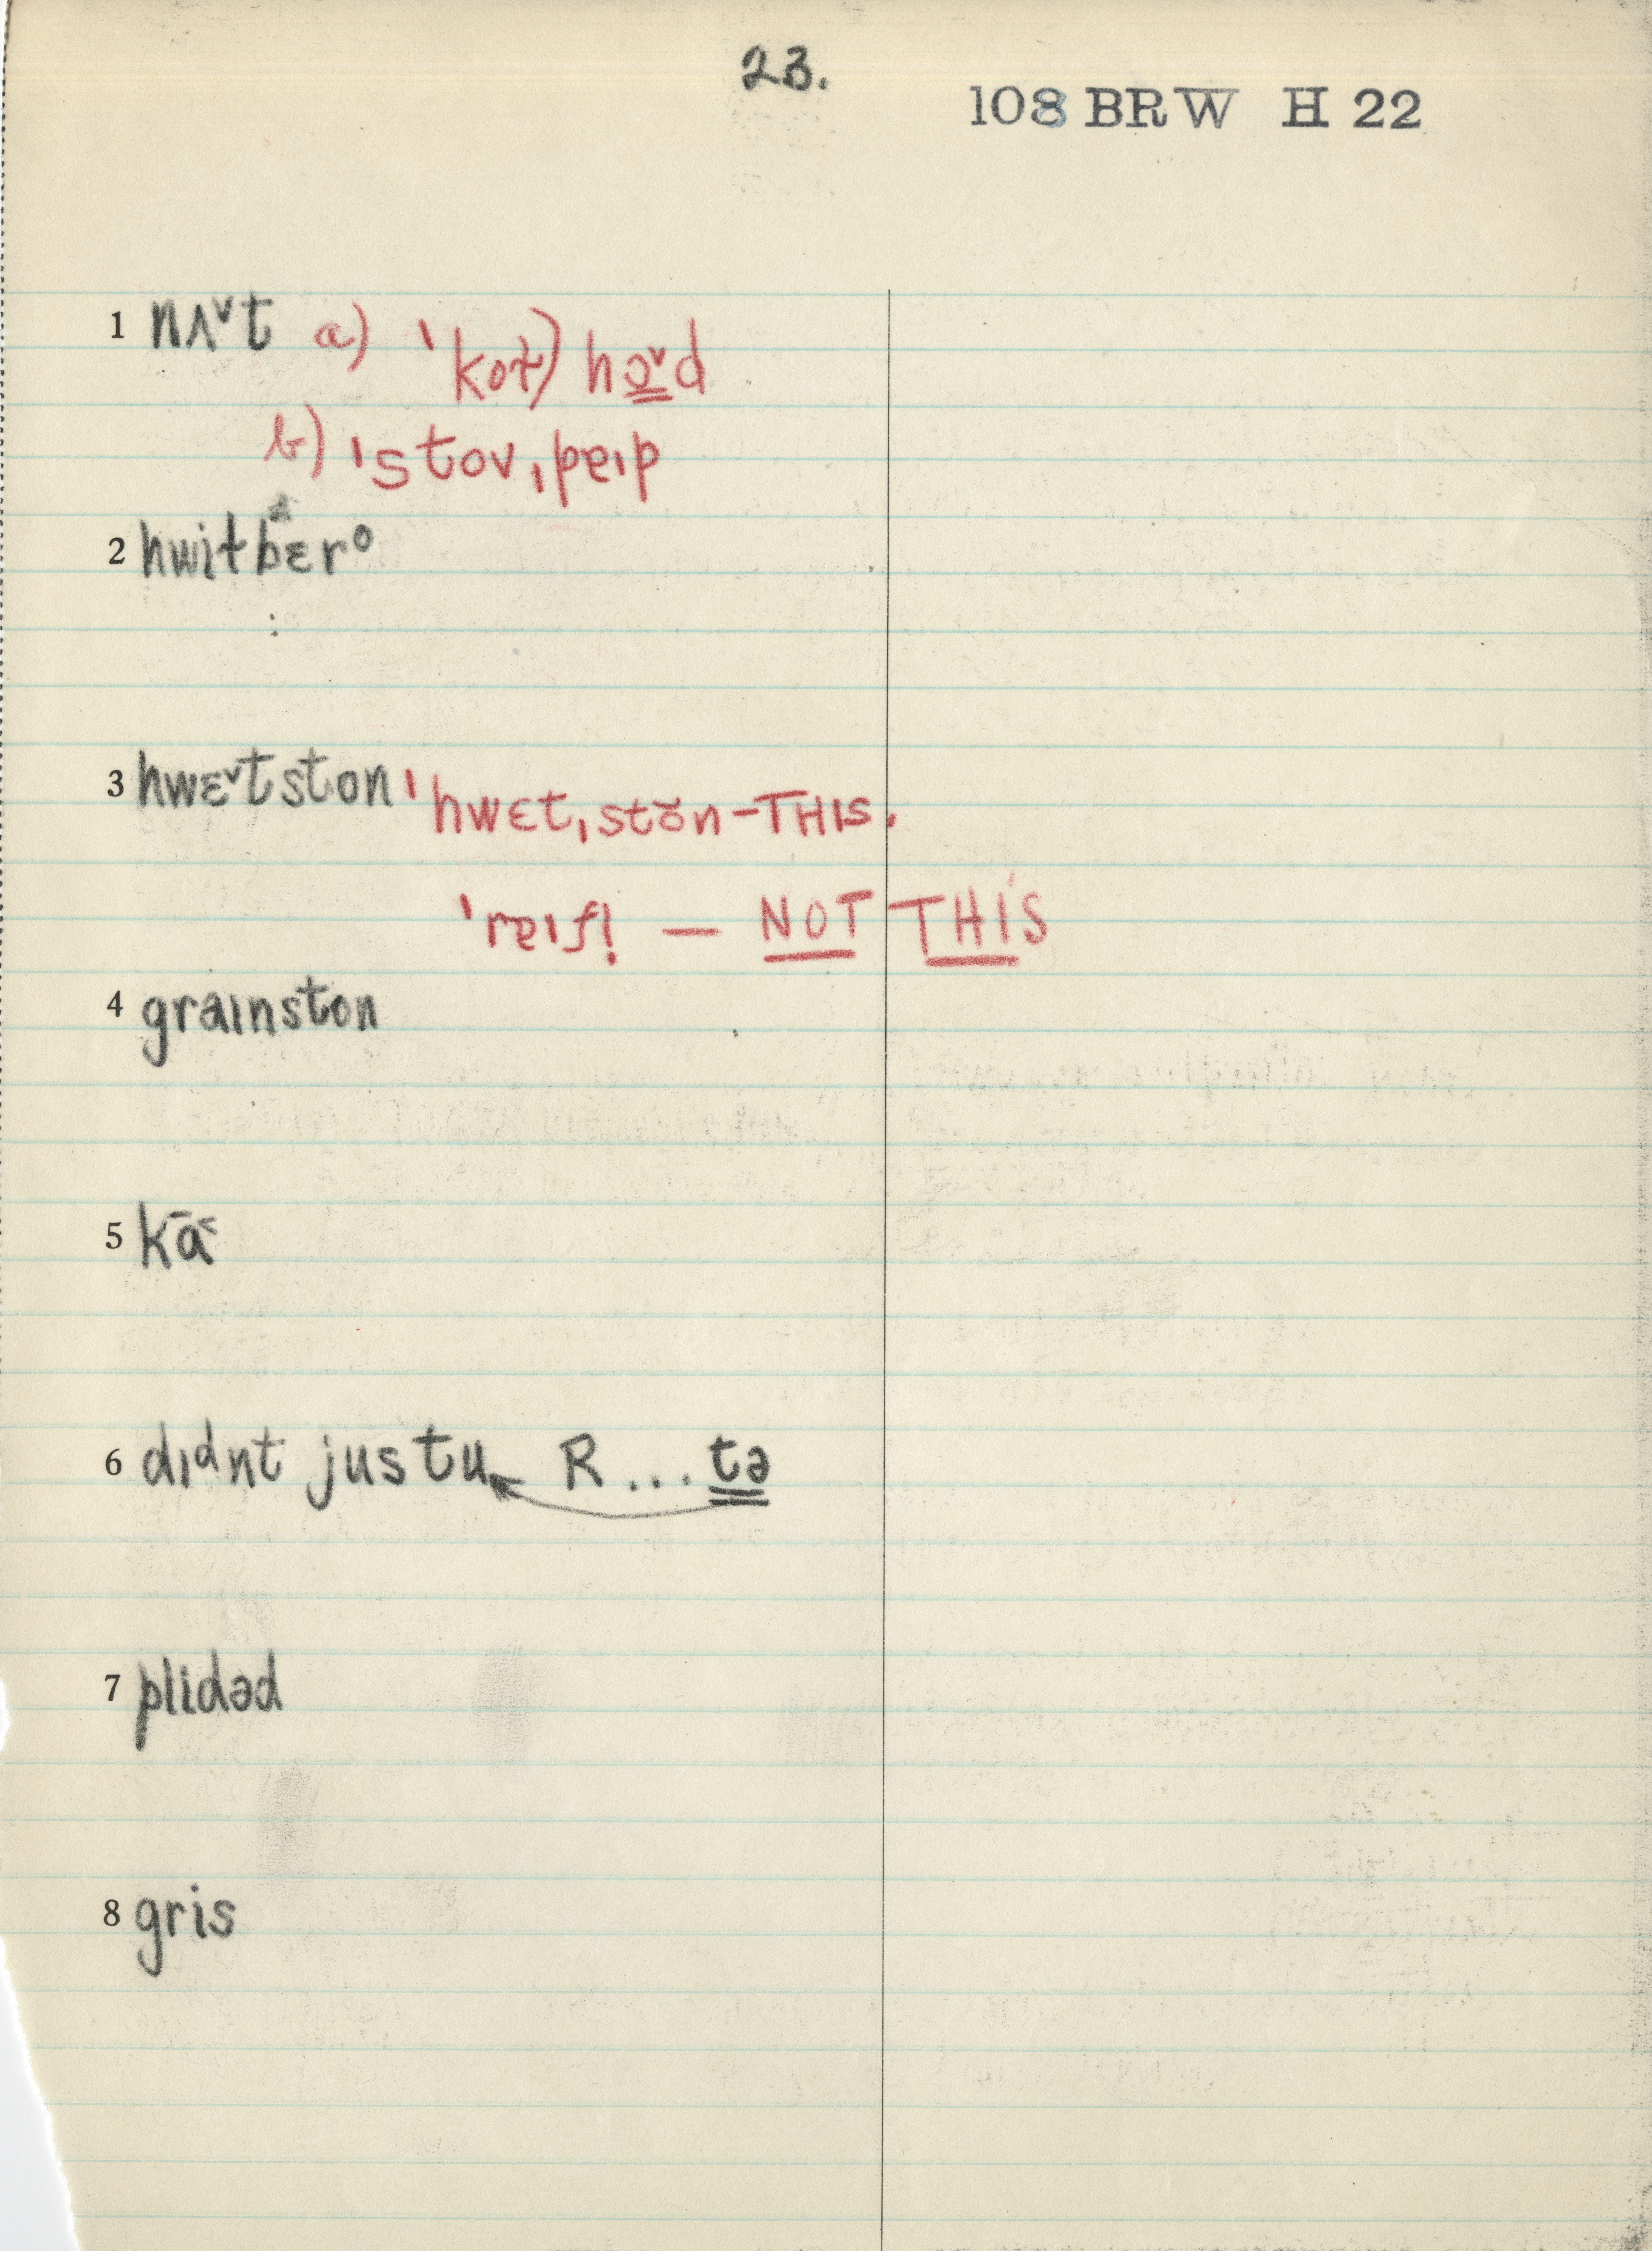 23.
108 BRW H 22
1 nʌ˅t a) ˈkot) hɔ˅d
b) ˈstovˌpɐɪp
2 hwitbɛrᵒ
3 hwɛ˅tston ˈhwɛtˌstŏn – THIS.
ˈrɐɪfl̩ — NOT THIS
4 graɪnston
5 kā˂
6 dɪdnt jus tu R... tə
7 plidəd
8 gris